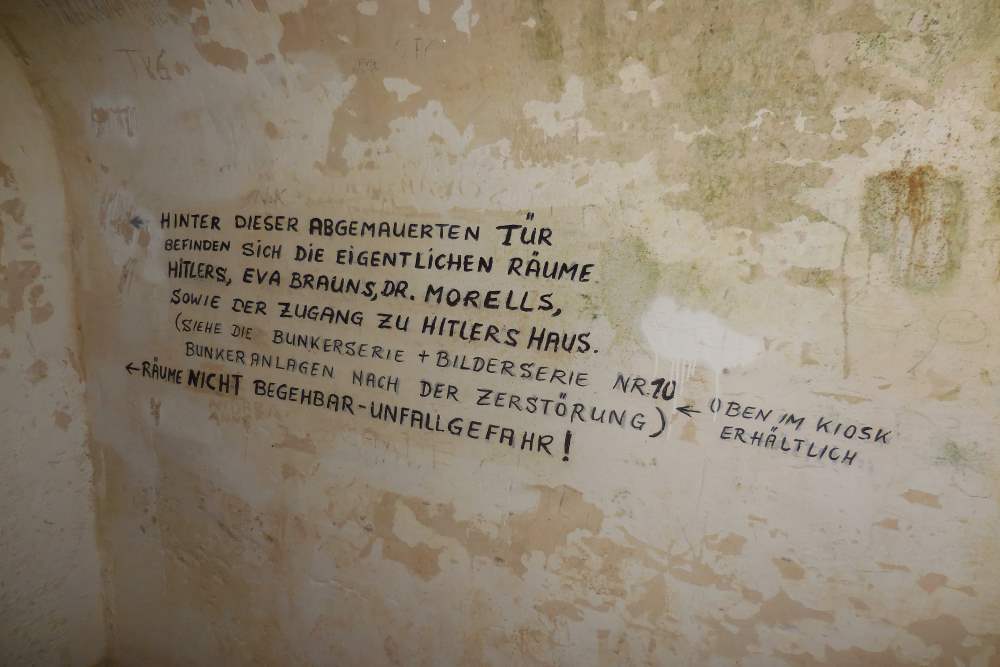 ← HINTER DIESER ABGEMAUERTEN TÜR
BEFINDEN SICH DIE EIGENTLICHEN RÄUME
HITLERS, EVA BRAUNS, DR. MORELLS,
SOWIE DER ZUGANG ZU HITLERS HAUS.
(SIEHE DIE BUNKERSERIE + BILDERSERIE NR. 10
BUNKERANLAGEN NACH DER ZERSTÖRUNG) ← OBEN IM KIOSK
ERHÄLTLICH
← RÄUME NICHT BEGEHBAR - UNFALLGEFAHR!